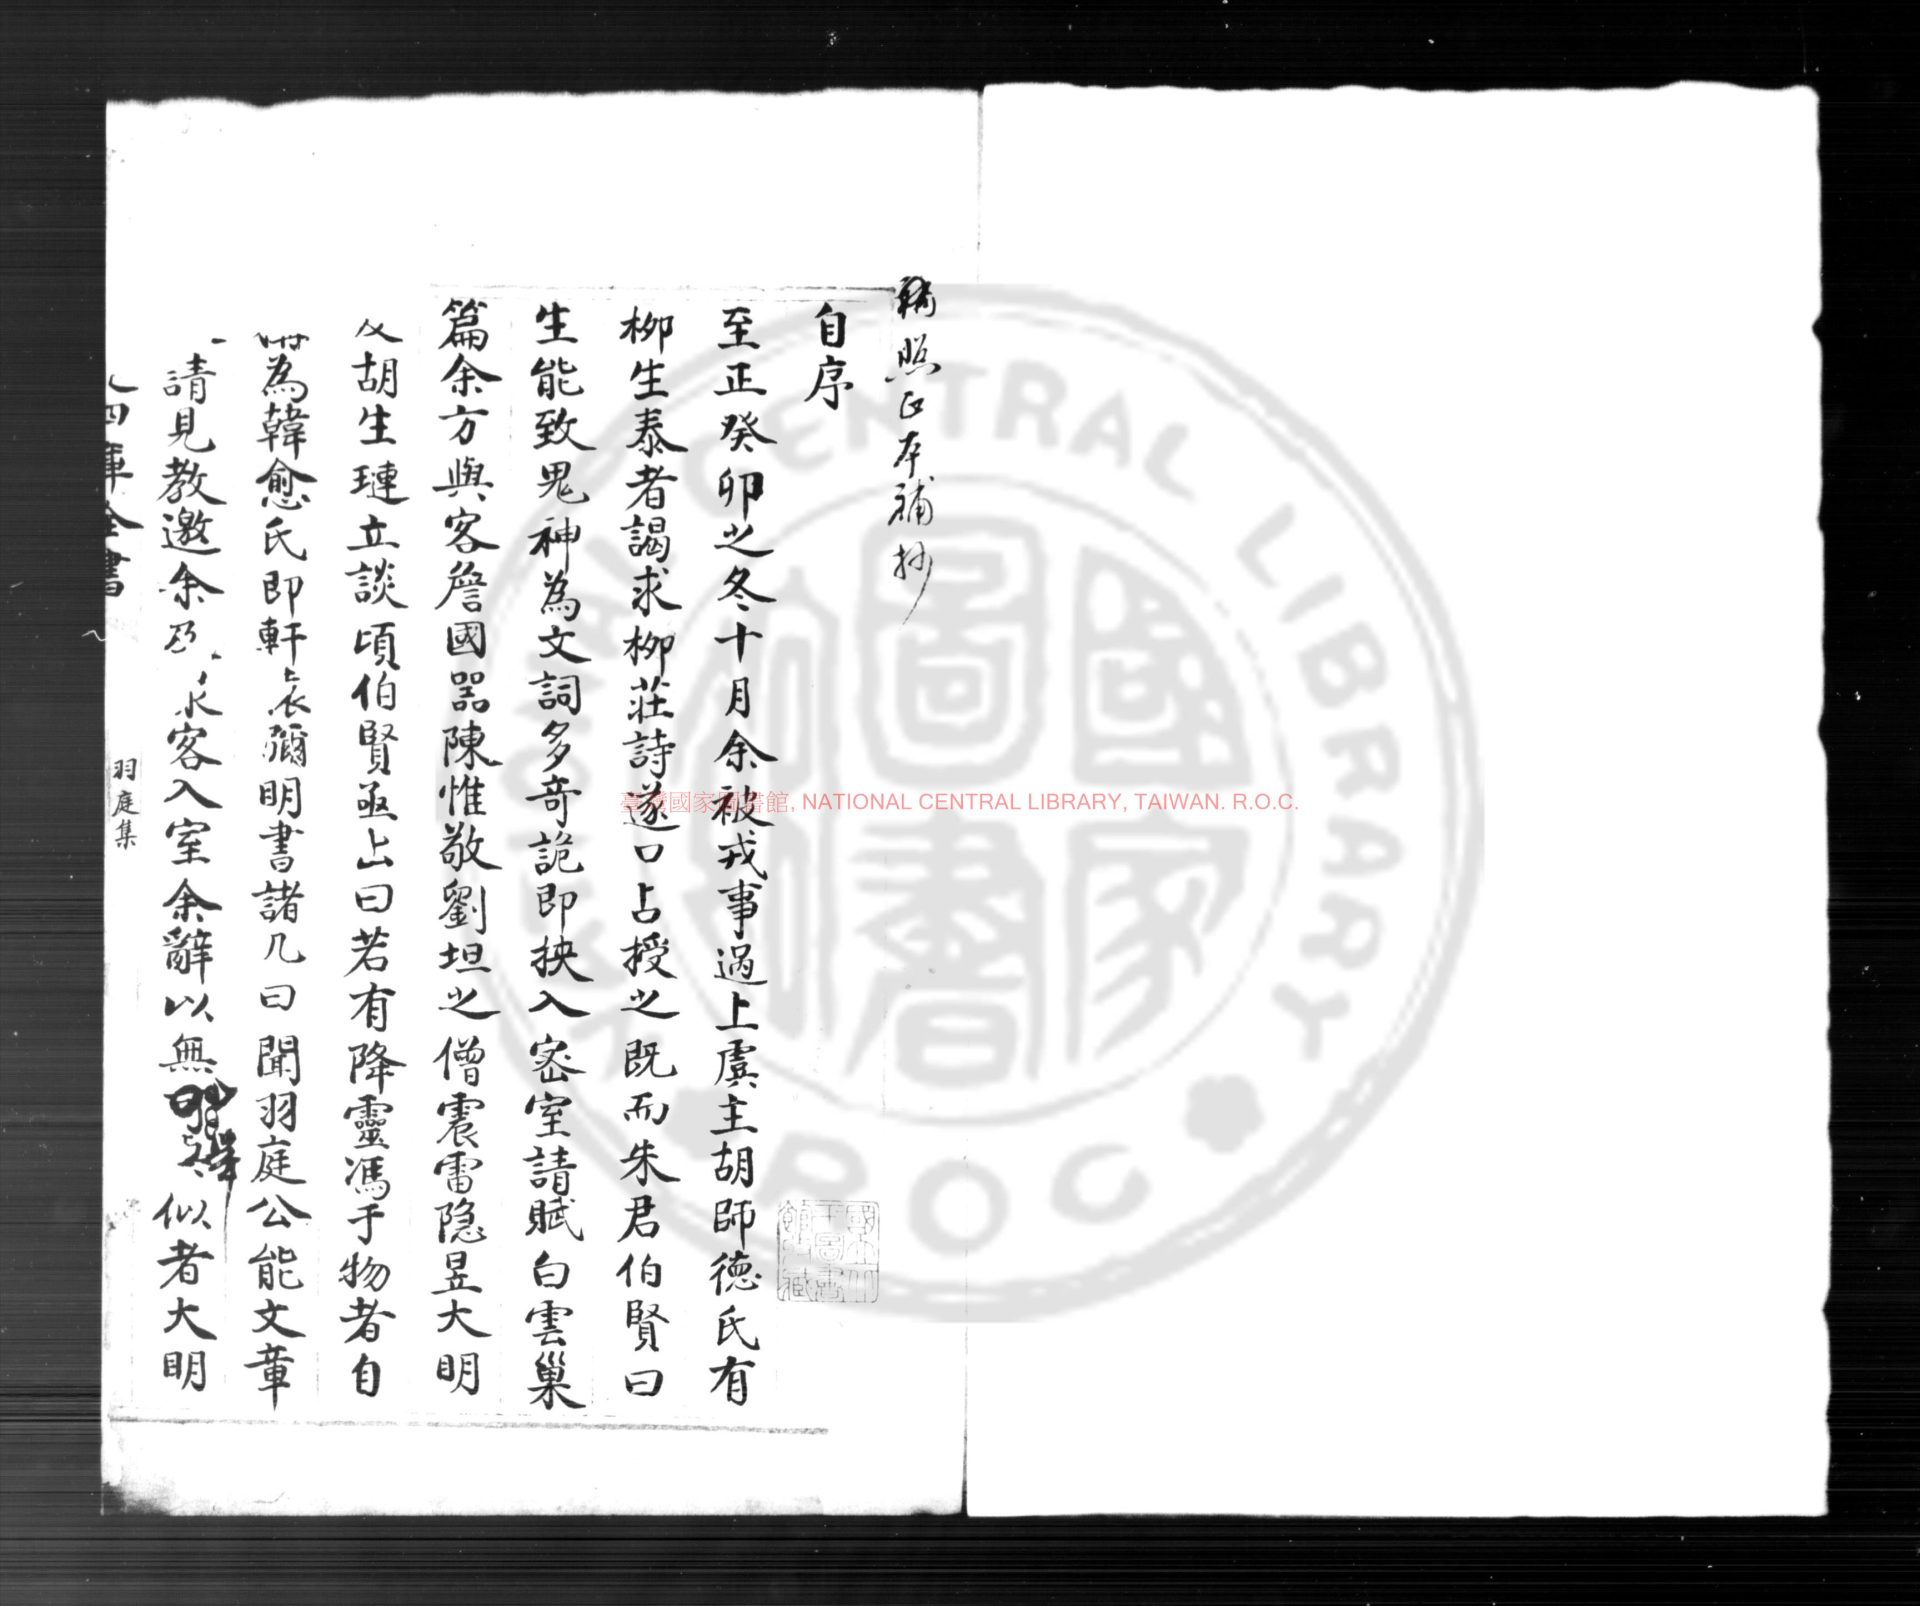 照正本補抄
自序
至正癸卯之冬十月余被戎事過上虞主胡師德氏有
柳生泰者謁求柳莊詩遂口占授之既而朱君伯賢曰
生能致鬼神為文詞多奇詭即挾入密室請賦白雲巢
篇余方與客詹國器陳惟敬劉坦之僧震雷隐昱大明
及胡生璉立談頃伯賢亟出曰若有降靈馮于物者自
為韓愈氏即軒轅彌明書諸几曰聞羽庭公能文章
請見教邀余乃求客入室余辭以無 似者大明
四庫全書
羽庭集
國立中央圖書館藏
臺灣國家圖書館, NATIONAL CENTRAL LIBRARY, TAIWAN. R.O.C.
NATIONAL CENTRAL LIBRARY
國家圖書館
ROC